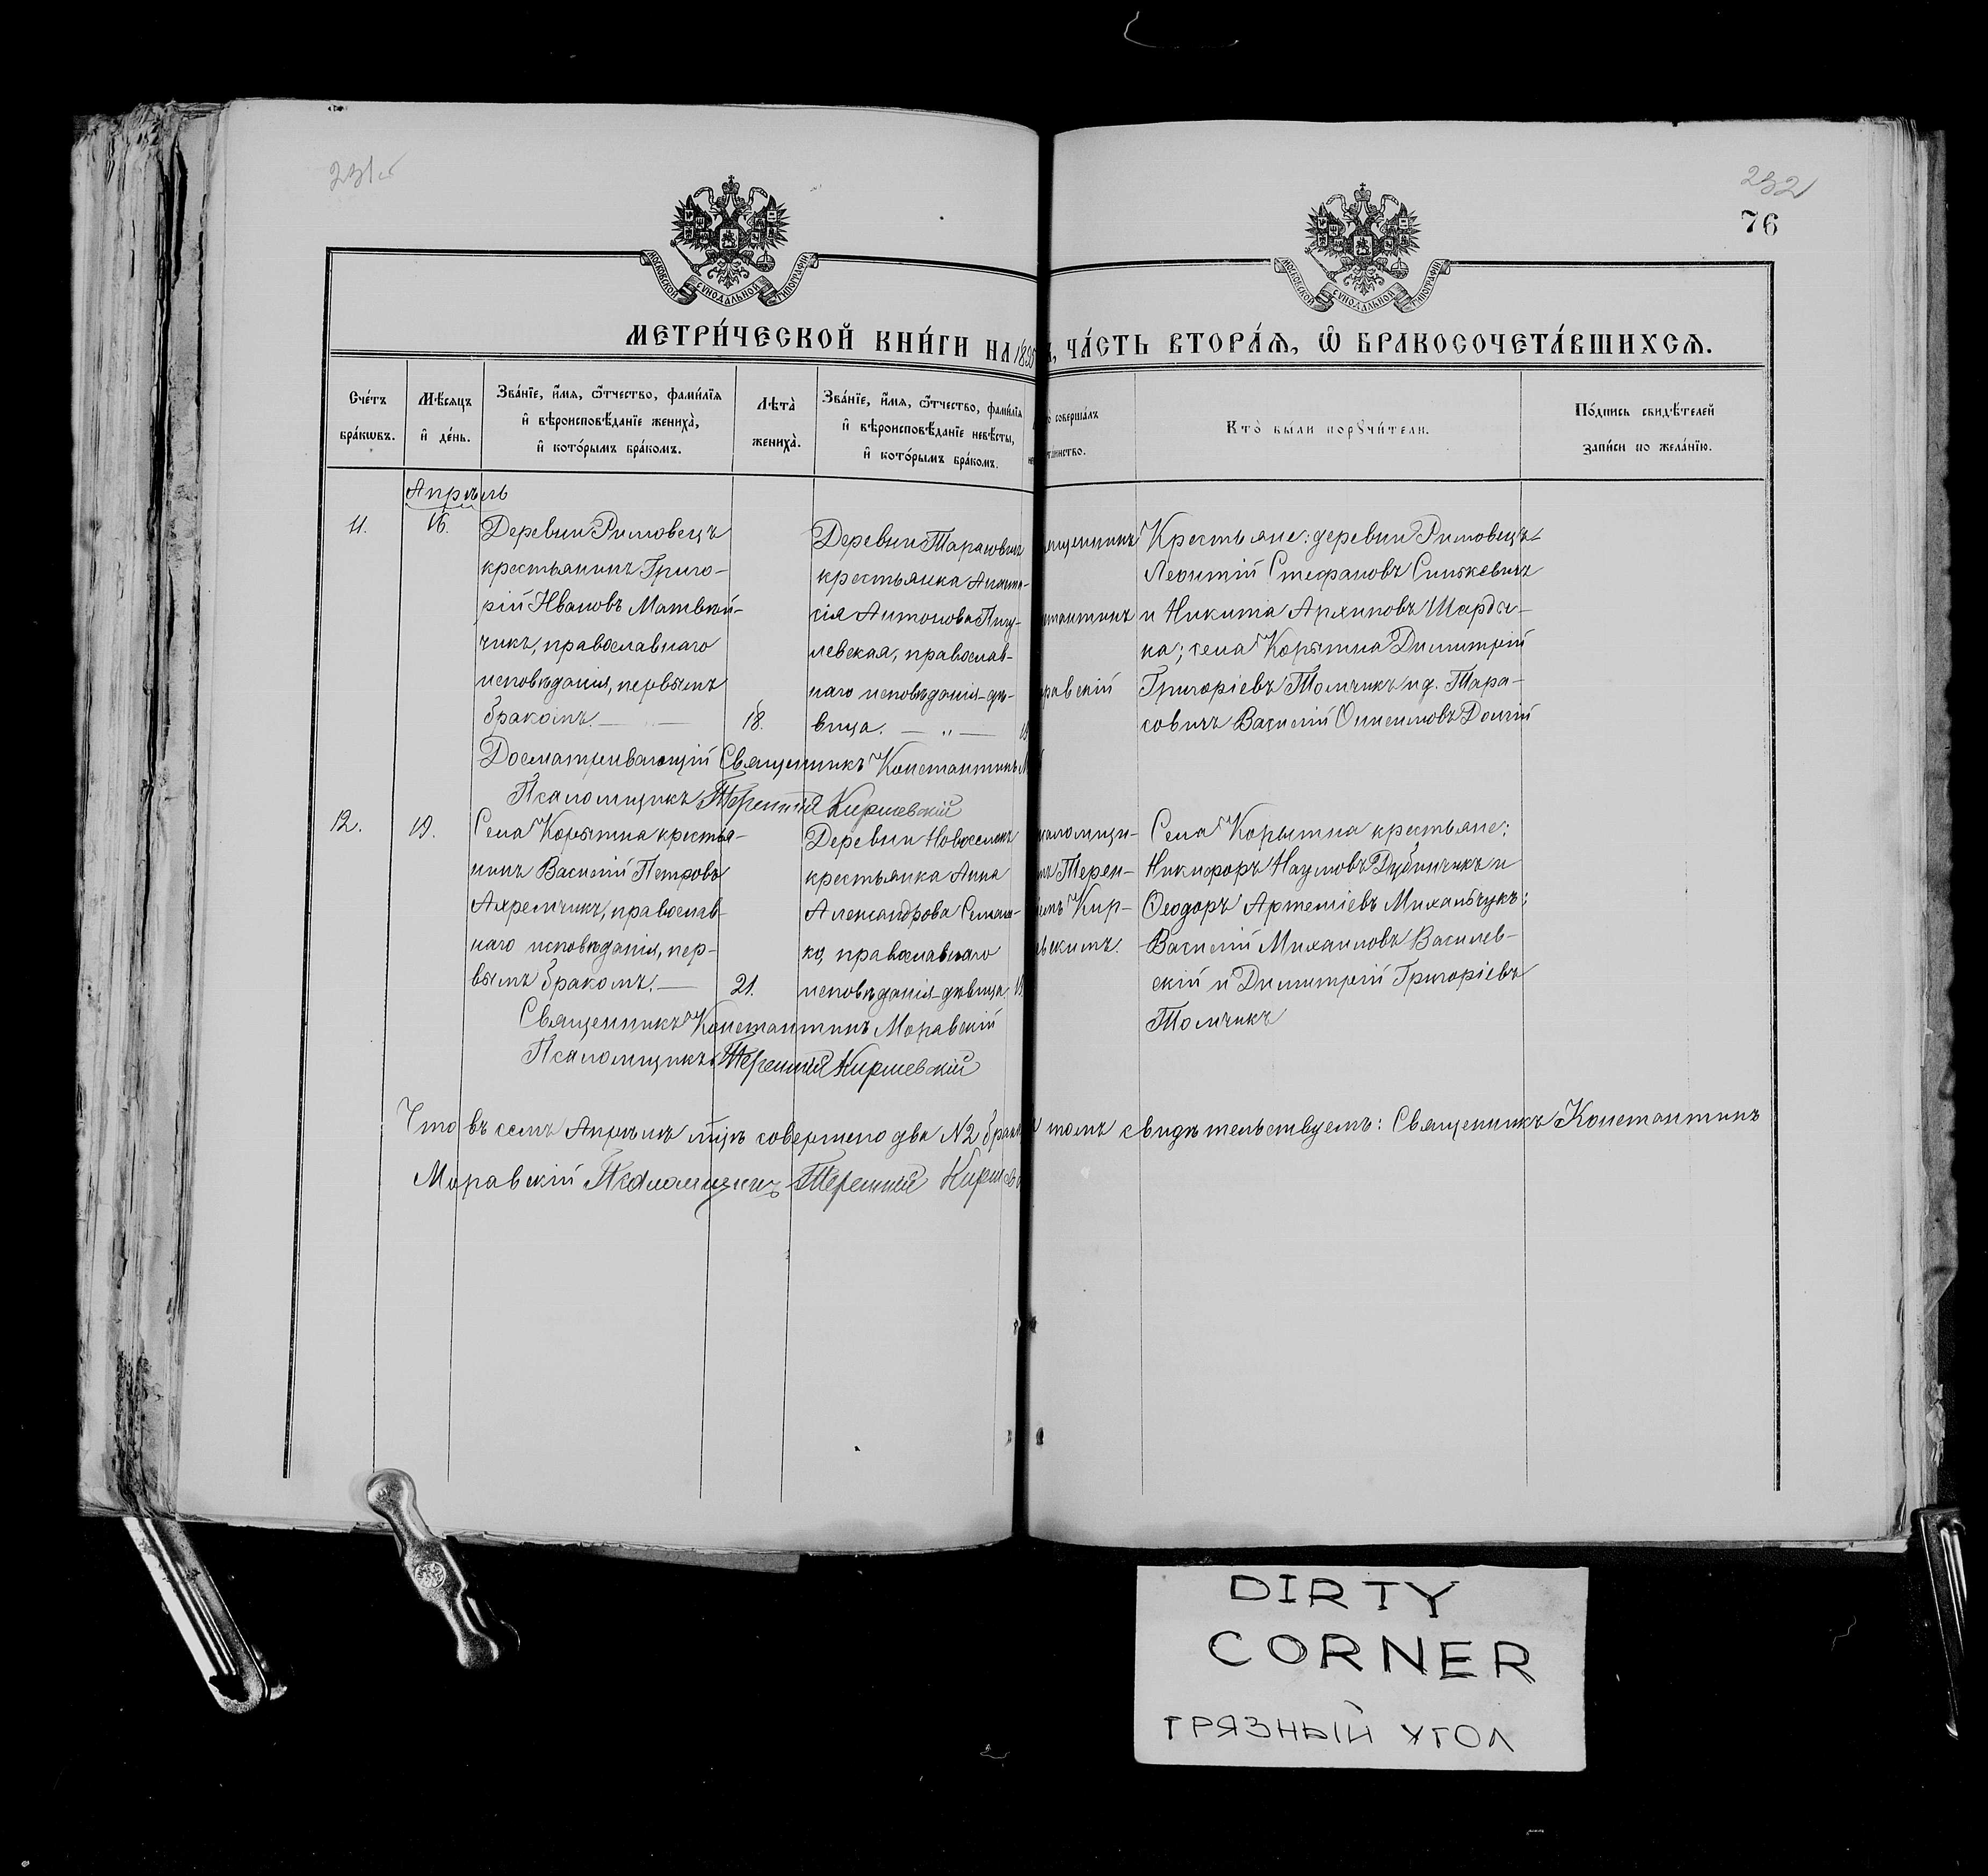 232
76
МОСКОВСКОЙ СѴНОДАЛЬНОЙ ТИПОГРАФІИ
МОСКОВСКОЙ СѴНОДАЛЬНОЙ ТИПОГРАФІИ
МЕТРИ́ЧЕСКОЙ КНИ́ГИ НА 1890
ЧА́СТЬ ВТОРА́Ѧ, Ѽ БРАКОСОЧЕТА́ВШИХСѦ.
Сче́тъ бра́кѡвъ.
Мѣ́сяцъ и҆ де́нь.
Зва́нїе, и҆́мя, ѻ҆́тчество, фами́лїя и҆ вѣроисповѣ́данїе жениха̀, и҆ кото́рымъ бра́комъ.
Лѣта̀ жениха̀.
Зва́нїе, и҆́мя, ѻ҆́тчество, фами́лїя и҆ вѣроисповѣ́данїе невѣ́сты, и҆ кото́рымъ бра́комъ.
соверша́лъ
та́инство.
Кто̀ бы́ли порꙋчи́тели.
По́дпись свидѣ́телей за́писи по жела́нїю.
Апрѣль
11.
16.
Деревни Римовецъ
крестьянинъ Григо-
рій Ивановъ Матвей-
чикъ, православнаго
исповѣданія, первымъ
бракомъ.
18.
Деревни Тарасовичъ
крестьянка
Антонова
левская, православ-
наго исповѣданія-дѣ-
вица. — „ —
Крестьяне: деревни Римовецъ
Леонтій Стефановъ Синкевичъ
и Никита Архиповъ Шарды-
ка; села Корытна Димитрій
Григоріевъ Томчикъ и д. Тара-
совичъ Василій Онисимовъ Долгій
Досматривающій Священникъ Константинъ
Псаломщикъ Терентій Киршевскій
12.
19.
Села Корытна крестья-
нинъ Василій Петровъ
Ахремчикъ, православ-
наго исповѣданія, пер-
вымъ бракомъ.—
21.
Деревни Новоселокъ
крестьянка Анна
Александрова Семаш-
ко, православнаго
исповѣданія-дѣвица
Села Корытна крестьяне:
Никифоръ Наумовъ Дубинчикъ и
Ѳеодоръ Артеміевъ Михальчукъ;
Василій Михаиловъ Василев-
скій и Димитрій Григоріевъ
Томчикъ
Священникъ Константинъ Моравскій
Псаломщикъ Терентій Киршевскій
Что въ семъ Апрѣлѣ мцѣ совершено два №2 брака томъ свидѣтельствуемъ: Священникъ Константинъ
Моравскій Псаломщикъ Терентій
DIRTY
CORNER
ГРЯЗНЫЙ УГОЛ